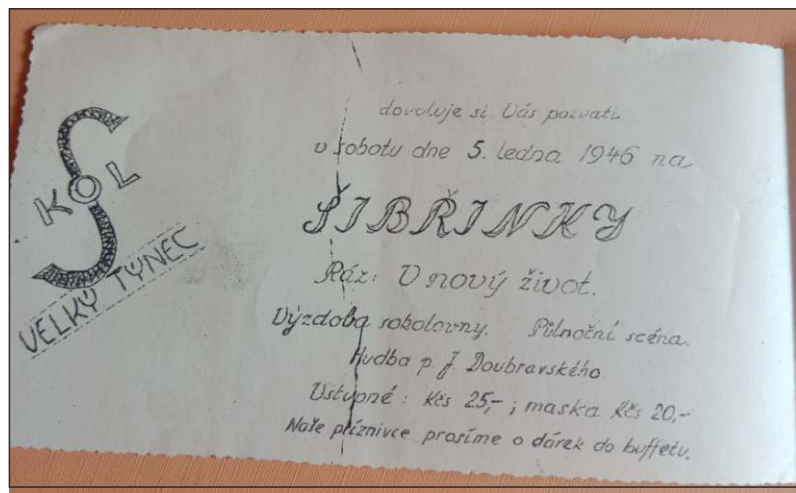 SOKOL
VELKÝ TÝNEC
dovoluje si Vás pozvati
v sobotu dne 5. ledna 1946 na
ŠIBŘINKY
Ráz: V nový život.
Výzdoba sokolovny. Půlnoční scéna.
Hudba p. J. Doubravského.
Vstupné: Kčs 25,-; maska Kčs 20,-
Naše příznivce prosíme o dárek do buffetu.